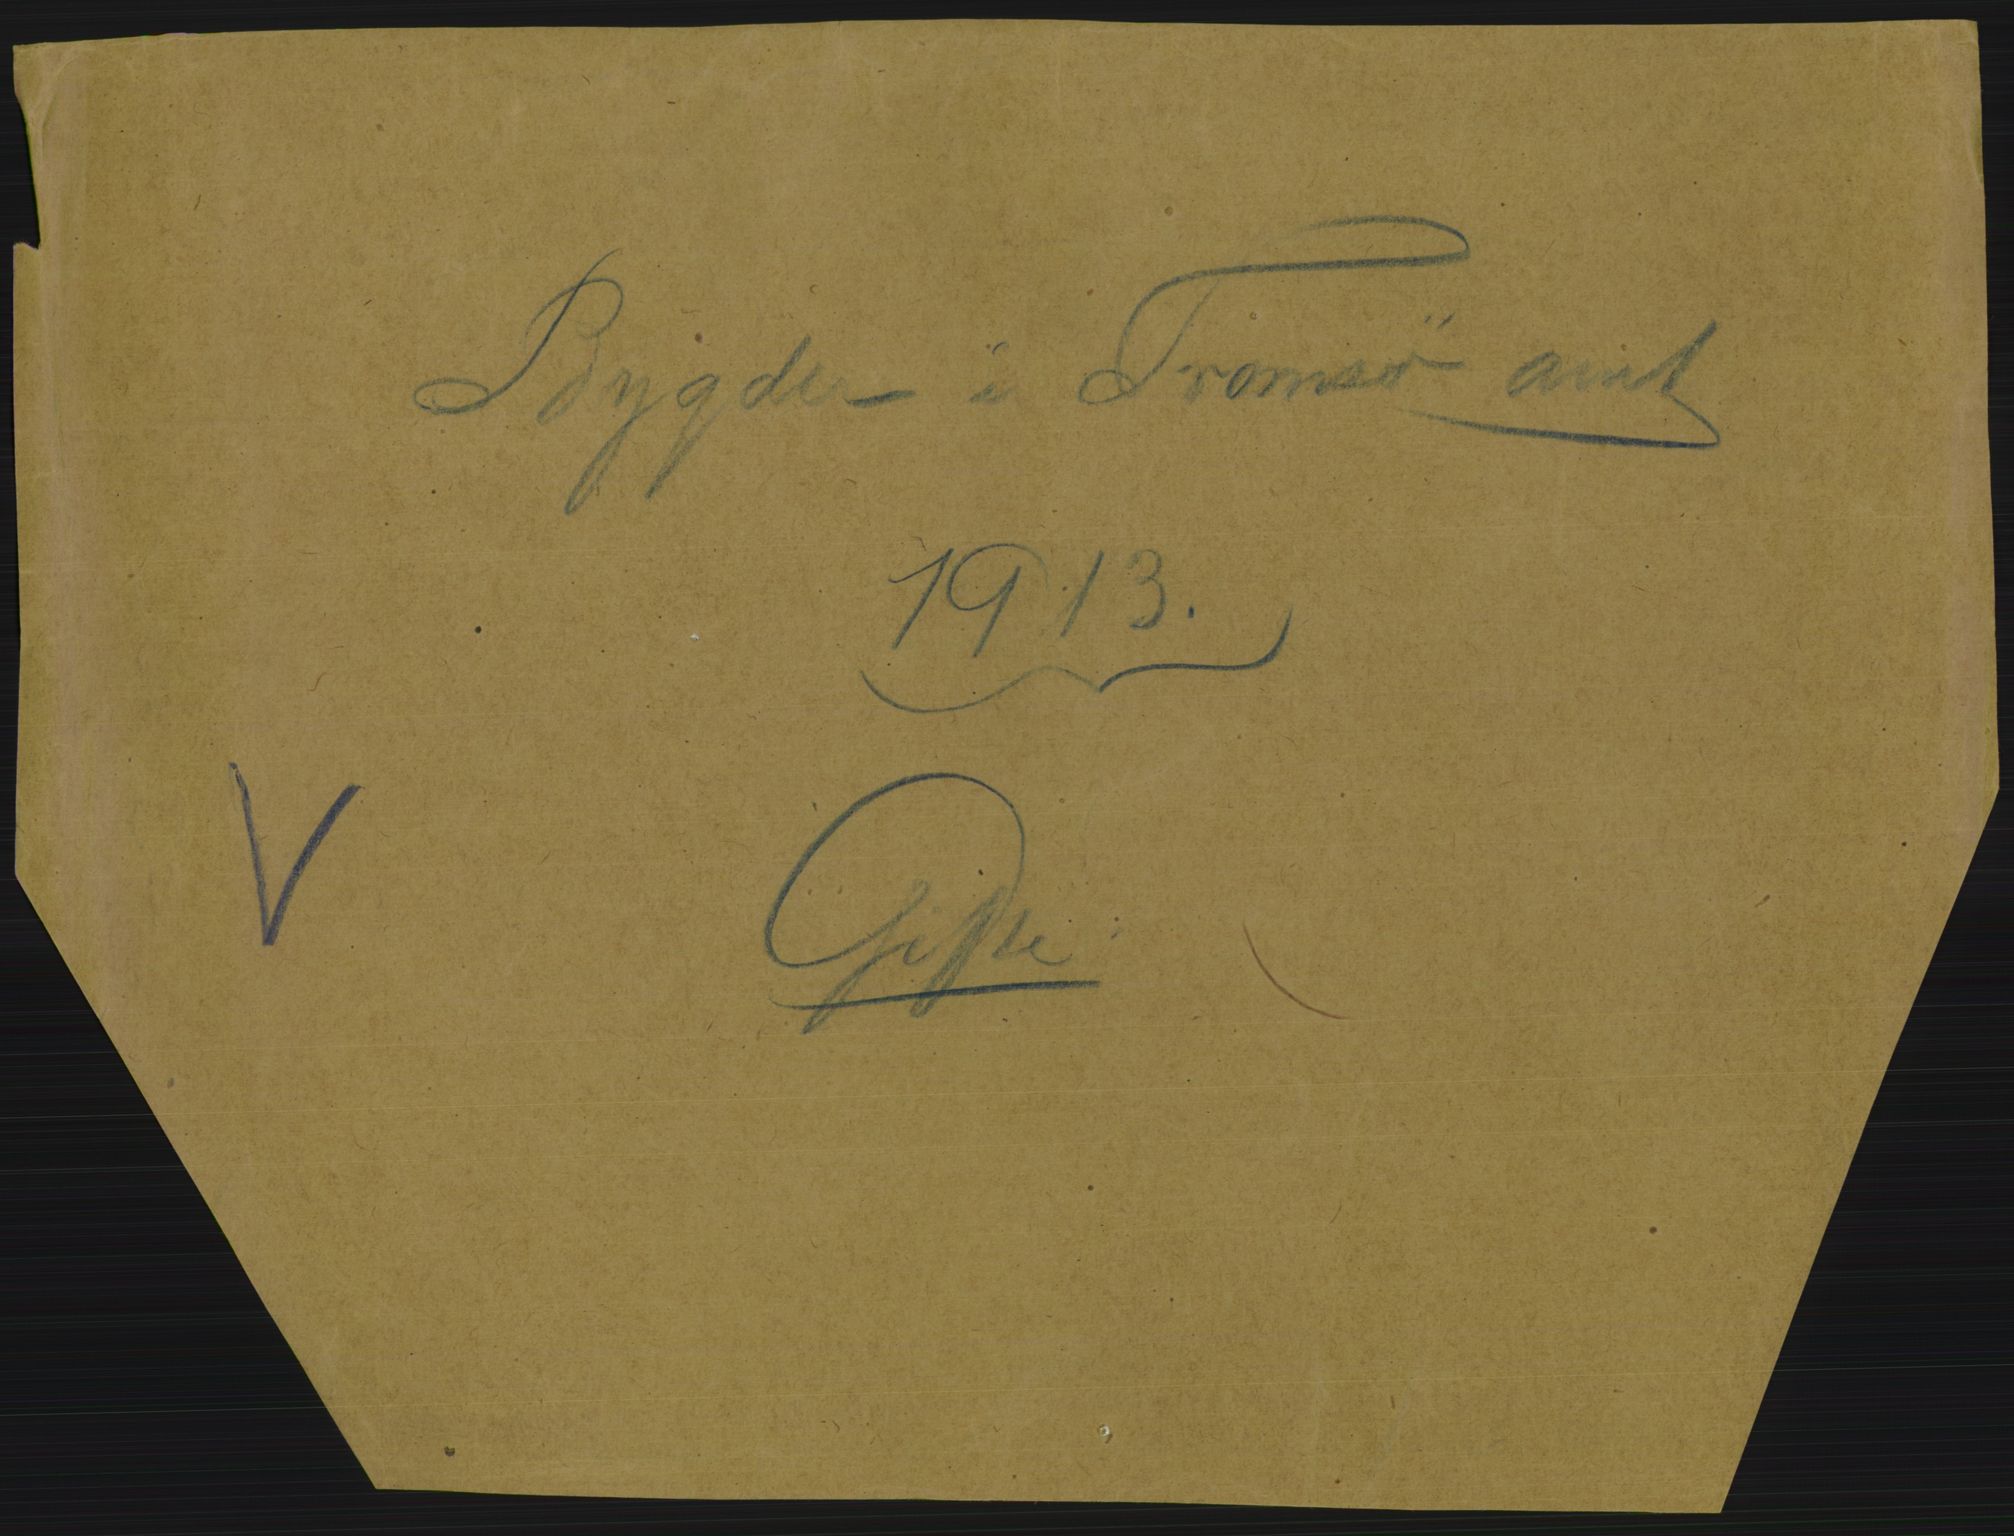 Bygder i Tromsö amt
1913.
V
Gifte